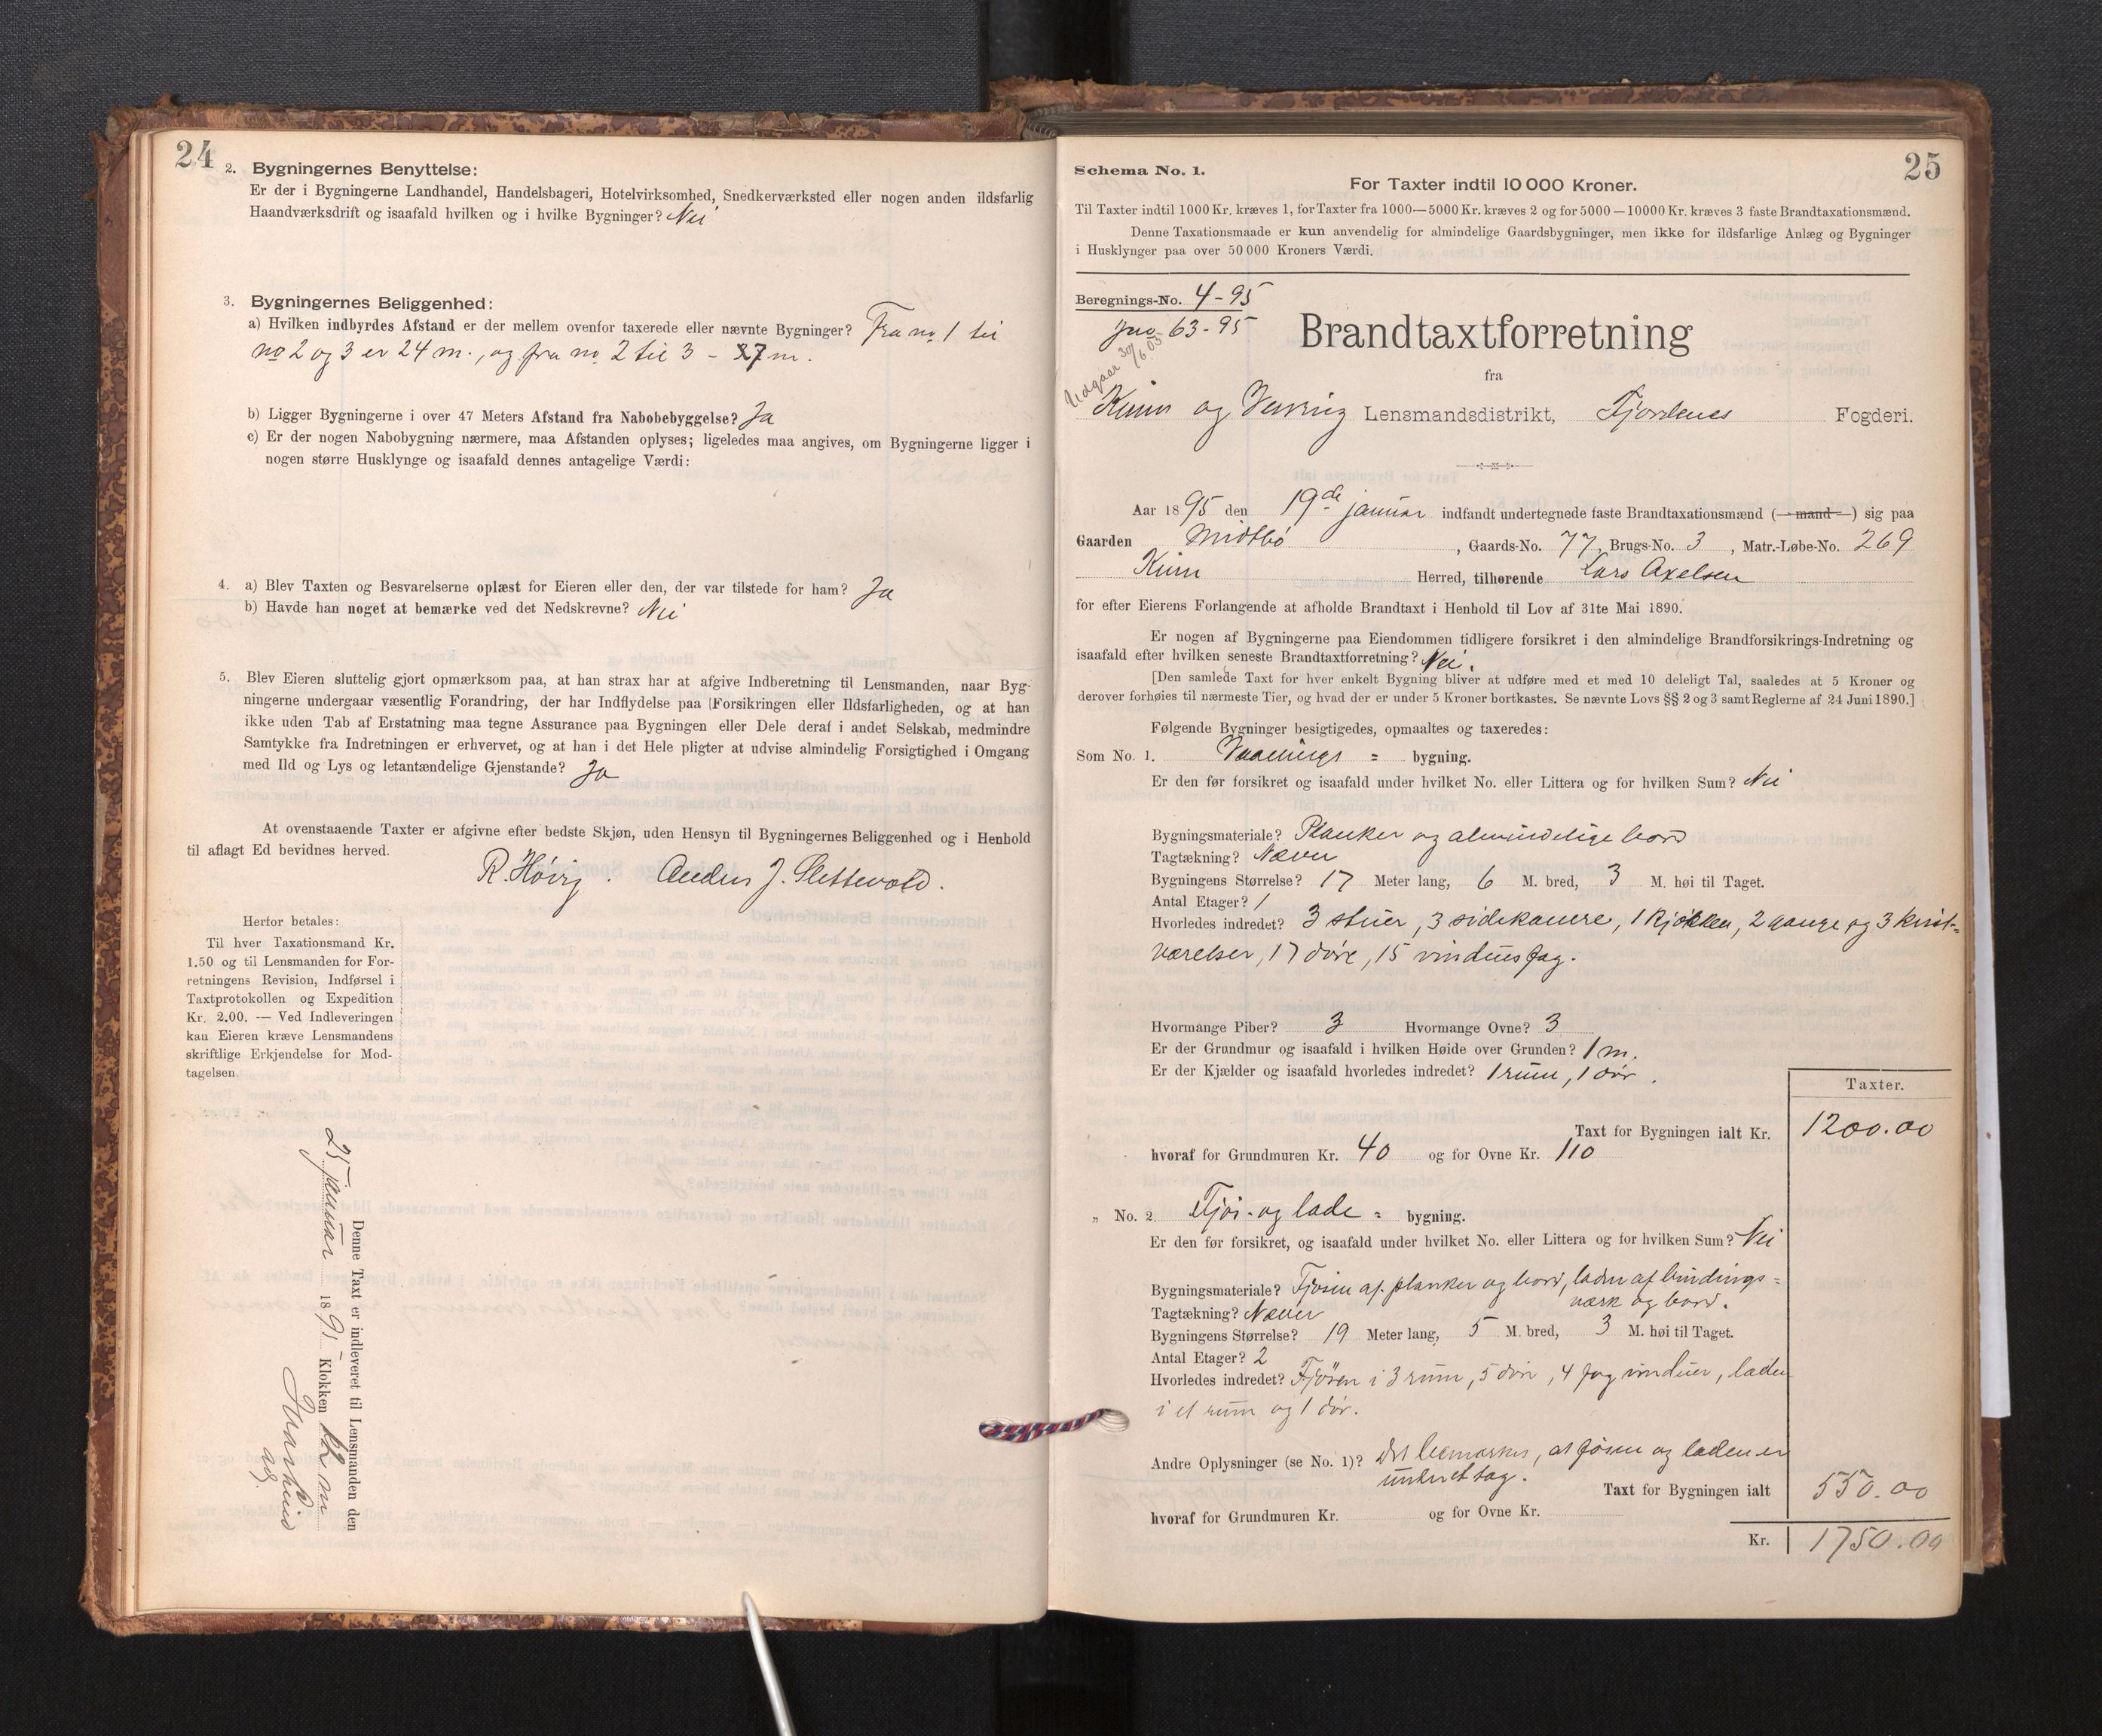 24
2. Bygningernes Benyttelse:
Er der i Bygningerne Landhandel, Handelsbageri, Hotelvirksomhed, Snedkerværksted eller nogen anden ildsfarlig
Haandværksdrift og isaafald hvilken og i hvilke Bygninger? Nei
3. Bygningernes Beliggenhed:
a) Hvilken indbyrdes Afstand er der mellem ovenfor taxerede eller nævnte Bygninger? Fra no 1 til
no 2 og 3 er 24 m., og fra no 2 til 3 - 37 m.
b) Ligger Bygningerne i over 47 Meters Afstand fra Nabobebyggelse? Ja
c) Er der nogen Nabobygning nærmere, maa Afstanden oplyses; ligeledes maa angives, om Bygningerne ligger i
nogen større Husklynge og isaafald dennes antagelige Værdi:
4. a) Blev Taxten og Besvarelserne oplæst for Eieren eller den, der var tilstede for ham? Ja
b) Havde han noget at bemærke ved det Nedskrevne? Nei
5. Blev Eieren sluttelig gjort opmærksom paa, at han strax har at afgive Indberetning til Lensmanden, naar Byg-
ningerne undergaar væsentlig Forandring, der har Indflydelse paa Forsikringen eller Ildsfarligheden, og at han
ikke uden Tab af Erstatning maa tegne Assurance paa Bygningen eller Dele deraf i andet Selskab, medmindre
Samtykke fra Indretningen er erhvervet, og at han i det Hele pligter at udvise almindelig Forsigtighed i Omgang
med Ild og Lys og letantændelige Gjenstande? Ja
At ovenstaaende Taxter er afgivne efter bedste Skjøn, uden Hensyn til Bygningernes Beliggenhed og i Henhold
til aflagt Ed bevidnes herved.
R. Høirg. Anders J. Slettevold.
Herfor betales:
Til hver Taxationsmand Kr.
1.50 og til Lensmanden for For-
retningens Revision, Indførsel i
Taxtprotokollen og Expedition
Kr. 2.00. — Ved Indleveringen
kan Eieren kræve Lensmandens
skriftlige Erkjendelse for Mod-
tagelsen
Denne Taxt er indleveret til Lensmanden den
25 januar 1895 Klokken 12 m
25
Schema No. 1.
For Taxter indtil 10 000 Kroner.
Til Taxter indtil 1000 Kr. kræves 1, for Taxter fra 1000—5000 Kr. kræves 2 og for 5000—10000 Kr. kræves 3 faste Brandtaxationsmænd.
Denne Taxationsmaade er kun anvendelig for almindelige Gaardsbygninger, men ikke for ildsfarlige Anlæg og Bygninger
i Husklynger paa over 50 000 Kroners Værdi.
Beregnings-No. 4-95
Jno 63-95
Udgaar 30/6.05
Brandtaxtforretning
fra
Kinn og Vevring Lensmandsdistrikt, Fjordenes Fogderi.
Aar 1895 den 19de januar indfandt undertegnede faste Brandtaxationsmænd (—mand—) sig paa
Gaarden Midtbö, Gaards-No. 77, Brugs-No. 3, Matr.-Løbe-No. 269
Kinn Herred, tilhørende Lars Axelsen
for efter Eierens Forlangende at afholde Brandtaxt i Henhold til Lov af 31te Mai 1890.
Er nogen af Bygningerne paa Eiendommen tidligere forsikret i den almindelige Brandforsikrings-Indretning og
isaafald efter hvilken seneste Brandtaxtforretning? Nei.
[Den samlede Taxt for hver enkelt Bygning bliver at udføre med et med 10 deleligt Tal, saaledes at 5 Kroner og
derover forhøies til nærmeste Tier, og hvad der er under 5 Kroner bortkastes. Se nævnte Lovs §§ 2 og 3 samt Reglerne af 24 Juni 1890.]
Følgende Bygninger besigtigedes, opmaaltes og taxeredes:
Som No. 1. Vaanings = bygning.
Er den før forsikret og isaafald under hvilket No. eller Littera og for hvilken Sum? Nei
Bygningsmateriale? Planker og almindelige bord
Tagtækning? Næver
Bygningens Størrelse? 17 Meter lang, 6 M. bred, 3 M. høi til Taget.
Antal Etager? 1
Hvorledes indredet? 3 stuer, 3 sidekamre, 1 kjökken, 2 gange og 3 kvist-
værelser, 17 döre, 15 vinduesfag.
Hvormange Piber? 3 Hvormange Ovne? 3
Er der Grundmur og isaafald i hvilken Høide over Grunden? 1 m.
Er der Kjælder og isaafald hvorledes indredet? 1 rum, 1 dör.
Taxter.
Taxt for Bygningen ialt Kr. 1200.00
hvoraf for Grundmuren Kr. 40 og for Ovne Kr. 110
„ No. 2. Fjøs- og lade = bygning.
Er den før forsikret, og isaafald under hvilket No. eller Littera og for hvilken Sum? Nei
Bygningsmateriale? Fjösen af planker og bord, laden af bindings=
værk og bord.
Tagtækning? Næver
Bygningens Størrelse? 19 Meter lang, 5 M. bred, 3 M. høi til Taget.
Antal Etager? 2
Hvorledes indredet? Fjösen i 3 rum, 5 döre, 4 fag vinduer, laden
i et rum og 1 dör.
Andre Oplysninger (se No. 1)? Det bemærkes, at fjösen og laden er
under et tag.
Taxt for Bygningen ialt 550.00
hvoraf for Grundmuren Kr. og for Ovne Kr.
Kr. 1750.00